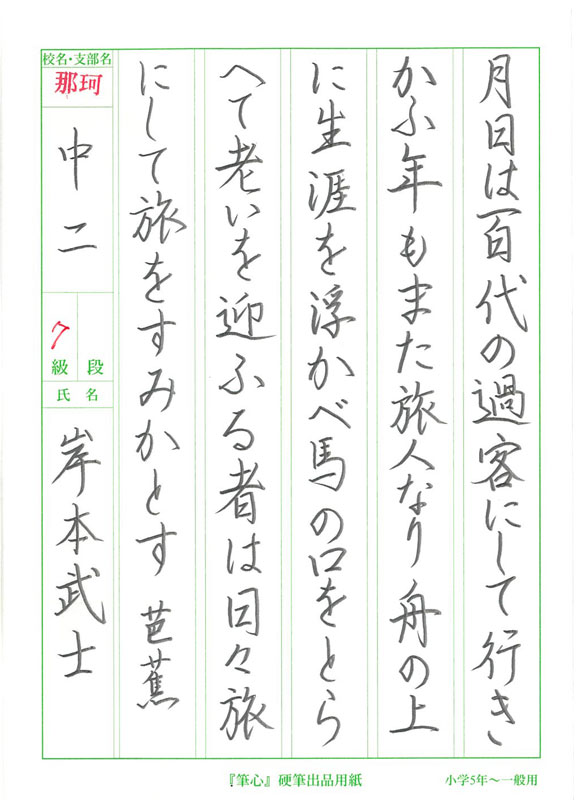 月日は百代の過客にして行き
かふ年もまた旅人なり舟の上
に生涯を浮かべ馬の口をとら
へて老いを迎ふる者は日々旅
にして旅をすみかとす 芭蕉
校名・支部名
那珂
中二
段
級
7
氏名
岸本武士
『筆心』硬筆出品用紙
小学5年～一般用